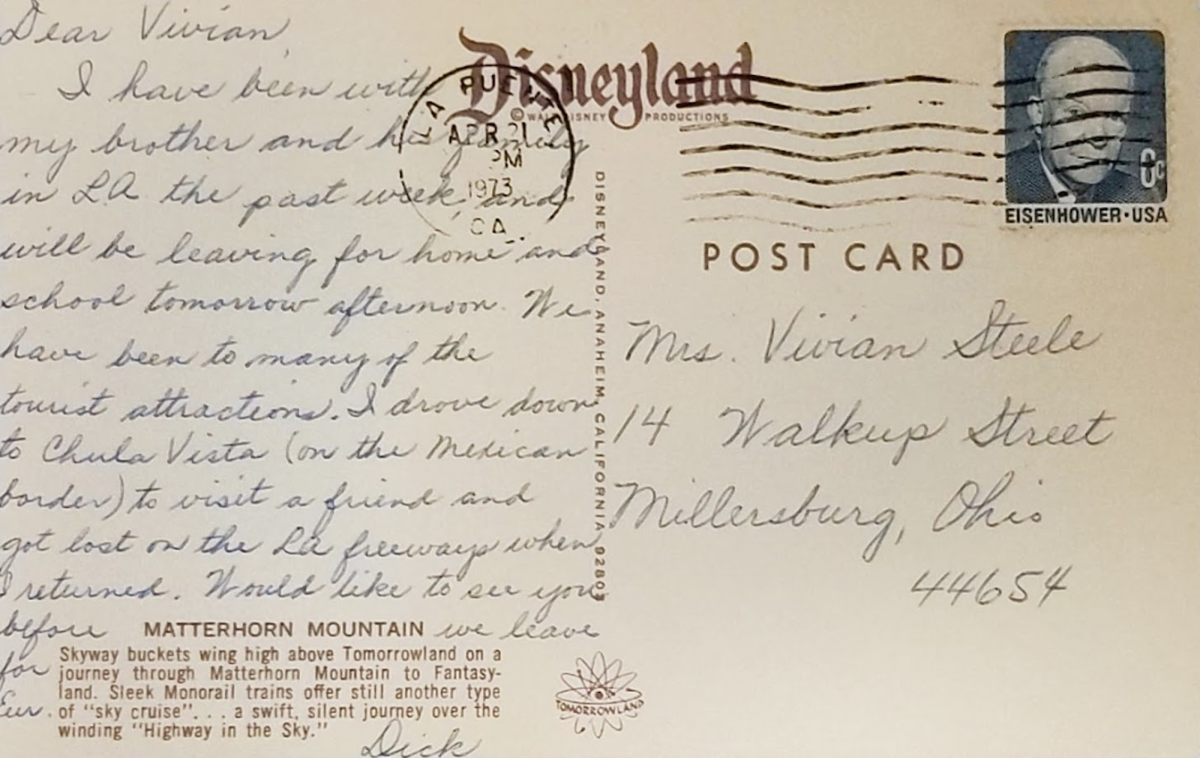 Dear Vivian,
I have been with
my brother and his family
in LA the past week, and
will be leaving for home and
school tomorrow afternoon. We
have been to many of the
tourist attractions. I drove down
to Chula Vista (on the Mexican
border) to visit a friend and
got lost on the LA freeways when
I returned. Would like to see you
before we leave
for
Eur.
Dick
MATTERHORN MOUNTAIN
Skyway buckets wing high above Tomorrowland on a
journey through Matterhorn Mountain to Fantasy-
land. Sleek Monorail trains offer still another type
of "sky cruise". . . a swift, silent journey over the
winding "Highway in the Sky."
Disneyland
© WALT DISNEY PRODUCTIONS
LA PUENTE
APR 21
PM
1973
CA
DISNEYLAND, ANAHEIM, CALIFORNIA 92803
TOMORROWLAND
EISENHOWER·USA
POST CARD
Mrs. Vivian Steele
14 Walkup Street
Millersburg, Ohio
44654